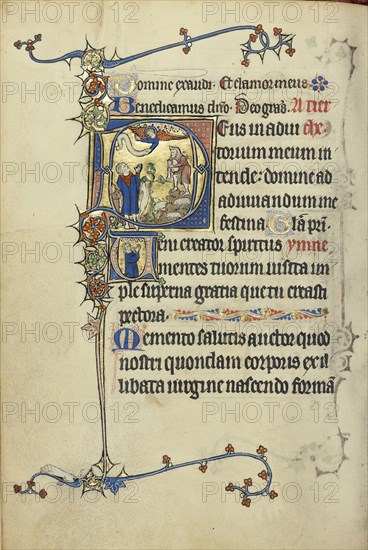 Domine exaudi. Et clamor meus
Benedicamus dno. Deo gras. A tier
Deus in adiu
torium meum in
tende: domine ad
adiuuandum me
festina. Gla pri.
Ueni creator spiritus ymne
mentes tuorum uisita im
ple superna gratia que tu creasti
pectora.
Memento salutis auctor quod
nostri quondam corporis ex il
libata uirgine nascendo formam
PHOTO 12